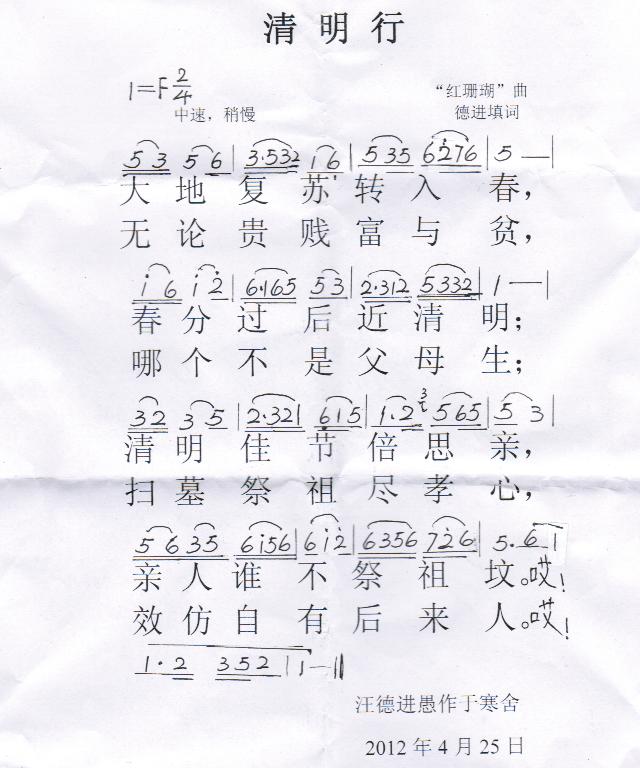 清明行
1=F 2/4
中速，稍慢
“红珊瑚”曲
德进填词
5 3 5 6 | 3·532 1 6 | 5 35 6 2 7 6 | 5 — |
大地复苏转入春，
无论贵贱富与贫，
i 6 i 2 | 6·165 5 3 | 2·312 5332 | 1 — |
春分过后近清明；
哪个不是父母生；
3 2 3 5 | 2·321 6 1 5 | 1·2 3 5 6 5 | 5 3 |
清明佳节倍思亲，
扫墓祭祖尽孝心，
5 6 3 5 6 i 5 6 | 6 i 2 | 6356 7 2 6 | 5· 6 1
亲人谁不祭祖坟。哎！
效仿自有后来人。哎！
1·2 3 5 2 | 1 — ‖
汪德进愚作于寒舍
2012年4月25日